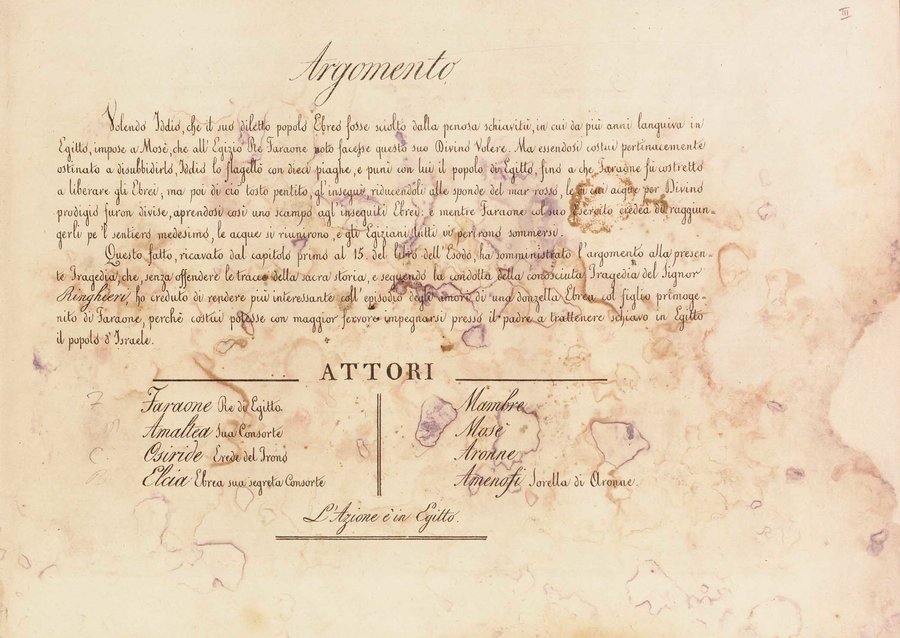 III
Argomento
Volendo Iddio, che il suo diletto popolo Ebreo fosse sciolto dalla penosa schiavitù, in cui da più anni languiva in
Egitto, impose a Mosè, che all' Egizio Re Faraone noto facesse questo suo Divino Volere. Ma essendosi costui pertinacemente
ostinato a disubbidirlo, Iddio lo flagellò con dieci piaghe, e punì con lui il popolo di Egitto, fino a che Faraone fu costretto
a liberare gli Ebrei, ma poi di ciò tosto pentito, gl' inseguì riducendoli alle sponde del mar rosso, le di cui acque por Divino
prodigio furon divise, aprendosi così uno scampo agl' inseguiti Ebrei: e mentre Faraone col suo Esercito credea di raggiun-
gerli pe 'l sentiero medesimo, le acque si riunirono, e gli Egiziani tutti vi perirono sommersi.
Questo fatto, ricavato dal capitolo primo al 15. del libro dell' Esodo, ha somministrato l' argomento alla presen-
te Tragedia, che senza offendere le tracce della sacra storia, e seguendo la condotta della conosciuta Tragedia del Signor
Ringhieri, ho creduto di rendere più interessante coll' episodio degli amori di una donzella Ebrea col figlio primoge-
nito di Faraone, perchè costui potesse con maggior fervore impegnarsi presso il padre a trattenere schiavo in Egitto
il popolo d' Israele.
ATTORI
Faraone Re di Egitto.
Amaltea Sua Consorte
Osiride Erede del Trono
Elcia Ebrea sua segreta Consorte
Mambre
Mosè
Aronne
Amenofi Sorella di Aronne.
L'Azione è in Egitto.